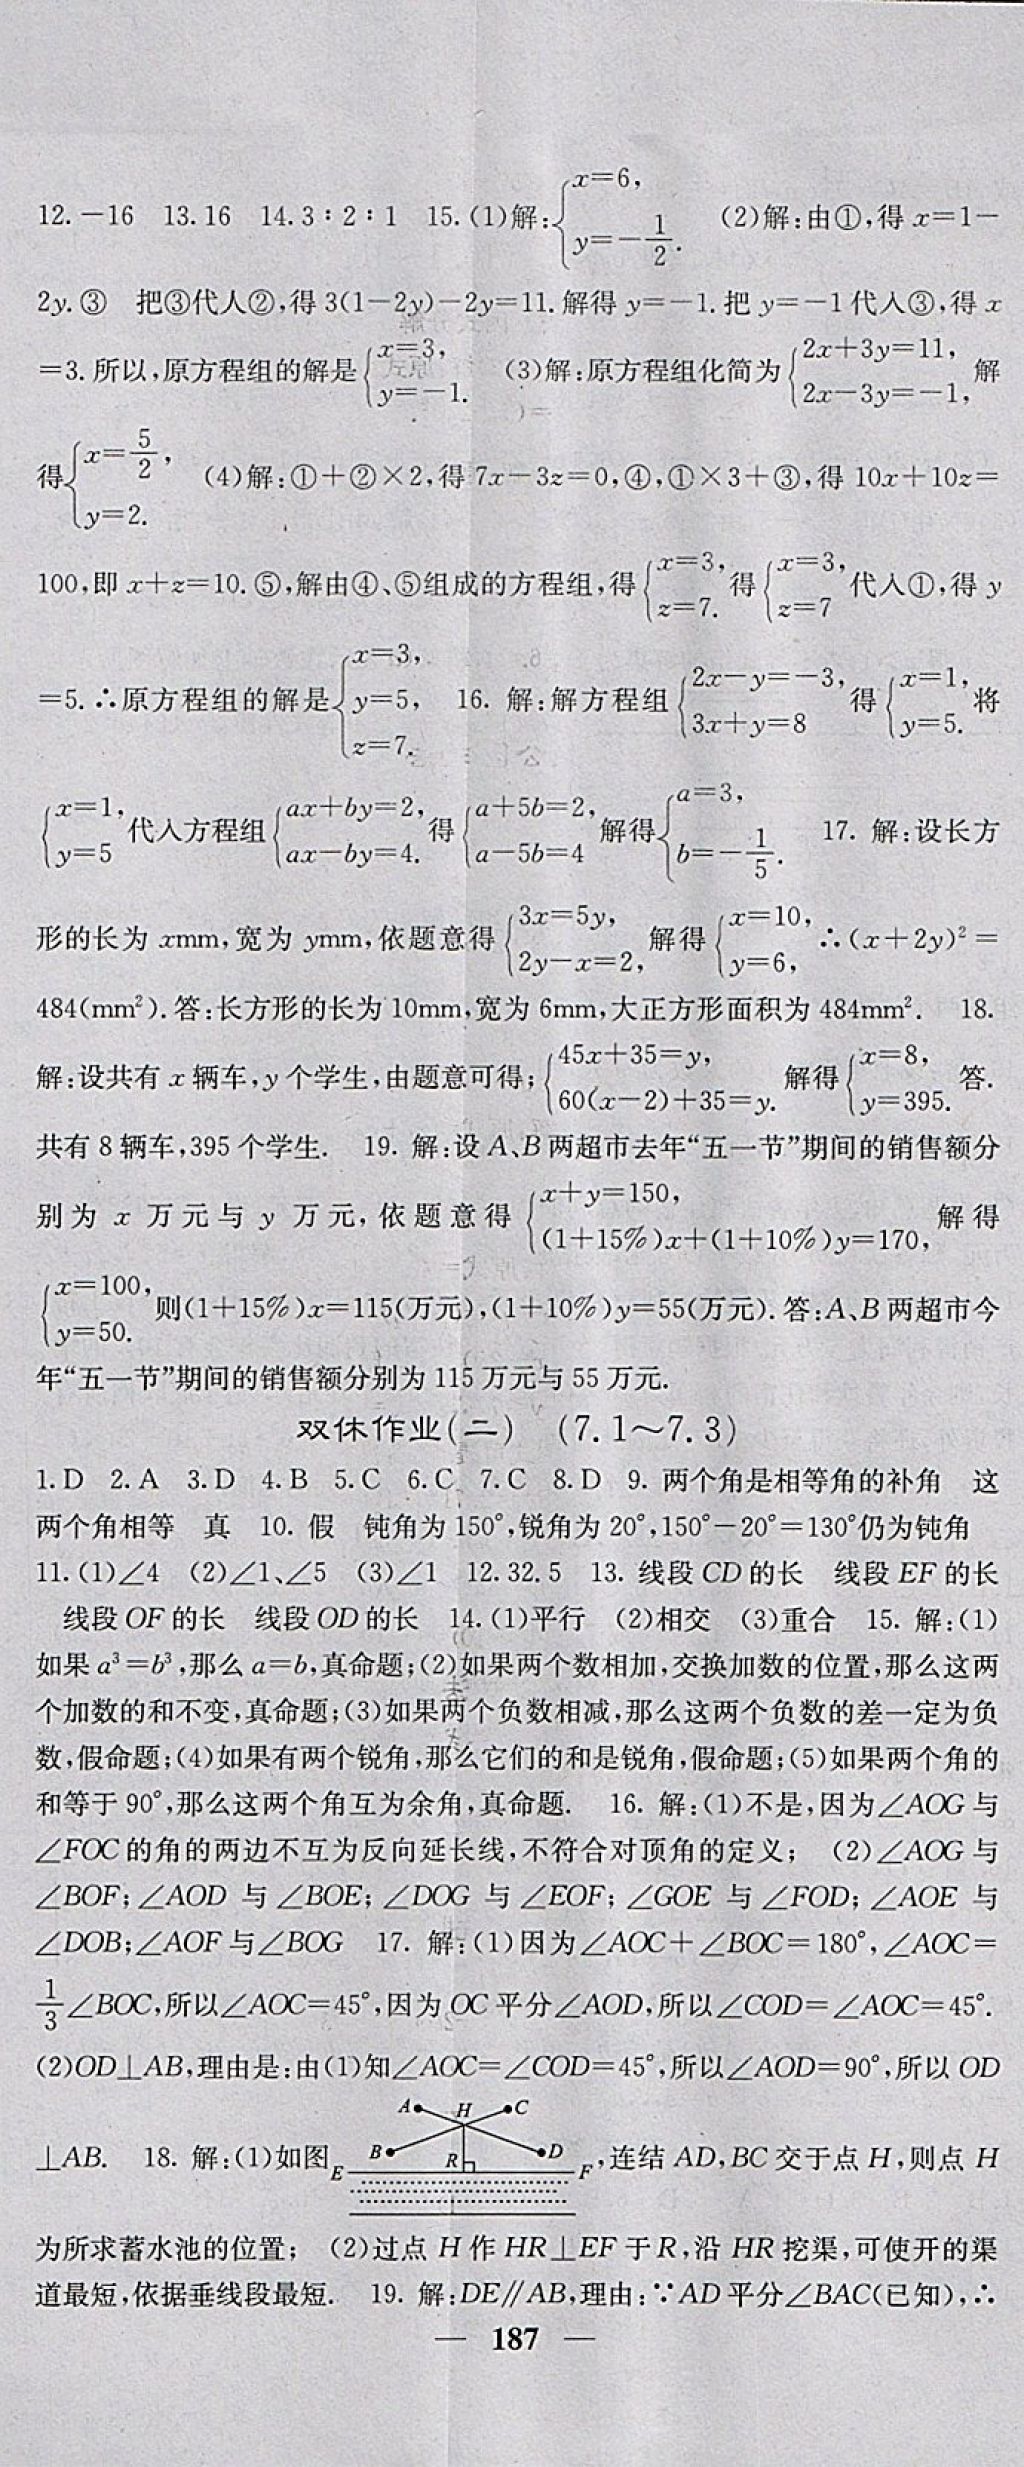 12. －16　13. 16　14. 3∶2∶1　15. (1)解:{x=6, y=－1/2.　(2)解:由①,得 x=1－
2y. ③　把③代人②,得 3(1－2y)－2y=11. 解得 y=－1. 把 y=－1 代入③,得 x
=3. 所以,原方程组的解是{x=3, y=－1.　(3)解:原方程组化简为{2x+3y=11, 2x－3y=－1, 解
得{x=5/2, y=2.　(4)解:①+②×2,得 7x－3z=0,④,①×3+③,得 10x+10z=
100,即 x+z=10. ⑤,解由④、⑤组成的方程组,得{x=3, z=7. 得{x=3, z=7 代入①,得 y
=5. ∴原方程组的解是{x=3, y=5, z=7.　16. 解:解方程组{2x－y=－3, 3x+y=8 得{x=1, y=5. 将
{x=1, y=5 代入方程组{ax+by=2, ax－by=4. 得{a+5b=2, a－5b=4 解得{a=3, b=－1/5.　17. 解:设长方
形的长为 xmm,宽为 ymm,依题意得{3x=5y, 2y－x=2, 解得{x=10, y=6, ∴(x+2y)²=
484(mm²). 答:长方形的长为 10mm,宽为 6mm,大正方形面积为 484mm².　18.
解:设共有 x 辆车,y 个学生,由题意可得;{45x+35=y, 60(x－2)+35=y. 解得{x=8, y=395. 答.
共有 8 辆车,395 个学生.　19. 解:设 A、B 两超市去年“五一节”期间的销售额分
别为 x 万元与 y 万元,依题意得{x+y=150, (1+15%)x+(1+10%)y=170, 解得
{x=100, y=50. 则(1+15%)x=115(万元),(1+10%)y=55(万元). 答:A、B 两超市今
年“五一节”期间的销售额分别为 115 万元与 55 万元.
双休作业(二)　(7.1～7.3)
1. D　2. A　3. D　4. B　5. C　6. C　7. C　8. D　9. 两个角是相等角的补角　这
两个角相等　真　10. 假　钝角为 150°,锐角为 20°,150°－20°=130°仍为钝角
11. (1)∠4　(2)∠1、∠5　(3)∠1　12. 32.5　13. 线段 CD 的长　线段 EF 的长
线段 OF 的长　线段 OD 的长　14. (1)平行　(2)相交　(3)重合　15. 解:(1)
如果 a³=b³,那么 a=b,真命题;(2)如果两个数相加,交换加数的位置,那么这两
个加数的和不变,真命题;(3)如果两个负数相减,那么这两个负数的差一定为负
数,假命题;(4)如果有两个锐角,那么它们的和是锐角,假命题;(5)如果两个角的
和等于 90°,那么这两个角互为余角,真命题.　16. 解:(1)不是,因为∠AOG 与
∠FOC 的角的两边不互为反向延长线,不符合对顶角的定义;　(2)∠AOG 与
∠BOF;∠AOD 与 ∠BOE;∠DOG 与 ∠EOF;∠GOE 与 ∠FOD;∠AOE 与
∠DOB;∠AOF 与∠BOG　17. 解:(1)因为∠AOC+∠BOC=180°,∠AOC=
1/3∠BOC,所以∠AOC=45°,因为 OC 平分∠AOD,所以∠COD=∠AOC=45°.
(2)OD⊥AB,理由是:由(1)知∠AOC=∠COD=45°,所以∠AOD=90°,所以 OD
A H C
B R D
E F
⊥AB.　18. 解:(1)如图,连结 AD,BC 交于点 H,则点 H
为所求蓄水池的位置;　(2)过点 H 作 HR⊥EF 于 R,沿 HR 挖渠,可使开的渠
道最短,依据垂线段最短.　19. 解:DE∥AB,理由:∵AD 平分∠BAC(已知),∴
— 187 —